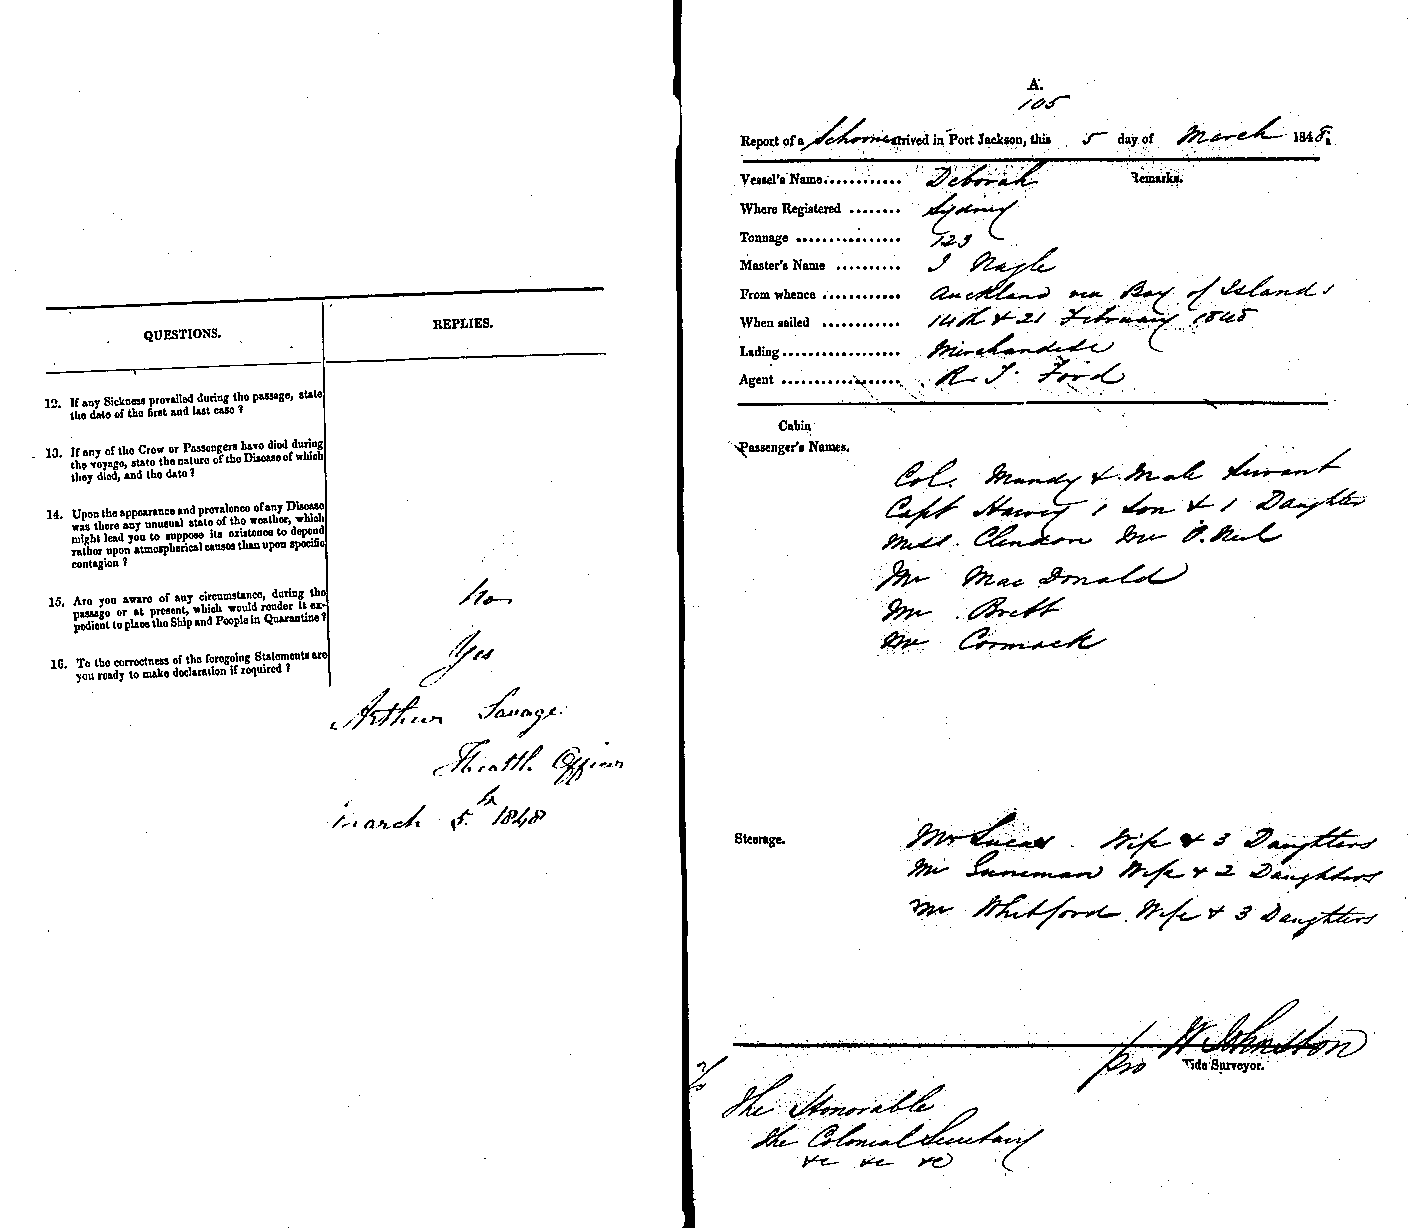 QUESTIONS.
REPLIES.
12. If any Sickness prevailed during the passage, state
the date of the first and last case ?
13. If any of the Crew or Passengers have died during
the voyage, state the nature of the Disease of which
they died, and the date ?
14. Upon the appearance and prevalence of any Disease
was there any unusual state of the weather, which
might lead you to suppose its existence to depend
rather upon atmospherical causes than upon specific
contagion ?
15. Are you aware of any circumstance, during the
passage or at present, which would render it ex-
pedient to place the Ship and People in Quarantine ?
No
16. To the correctness of the foregoing Statements are
you ready to make declaration if required ?
Yes
Arthur Savage
Health Officer
March 5th 1848
A.
105
Report of a Schooner arrived in Port Jackson, this 5 day of March 1848.
Vessel's Name............ Deborah Remarks.
Where Registered ........ Sydney
Tonnage ................ 123
Master's Name .......... J Nagle
From whence ............ Auckland via Bay of Islands
When sailed ............ 14th & 21 February 1848
Lading.................. Merchandise
Agent .................. R. T. Ford
Cabin
Passenger's Names.
Col. Mundy & Male Servant
Capt Harvey 1 Son & 1 Daughter
Miss Clendon Mr O.Neil
Mr Mac Donald
Mr Brett
Mr Cormack
Steerage.
Mr Lucas Wife & 3 Daughters
Mr Wife & 2 Daughters
Mr Whitford Wife & 3 Daughters
pro W Johnston
Tide Surveyor.
The Honorable
the Colonial Secretary
&c &c &c